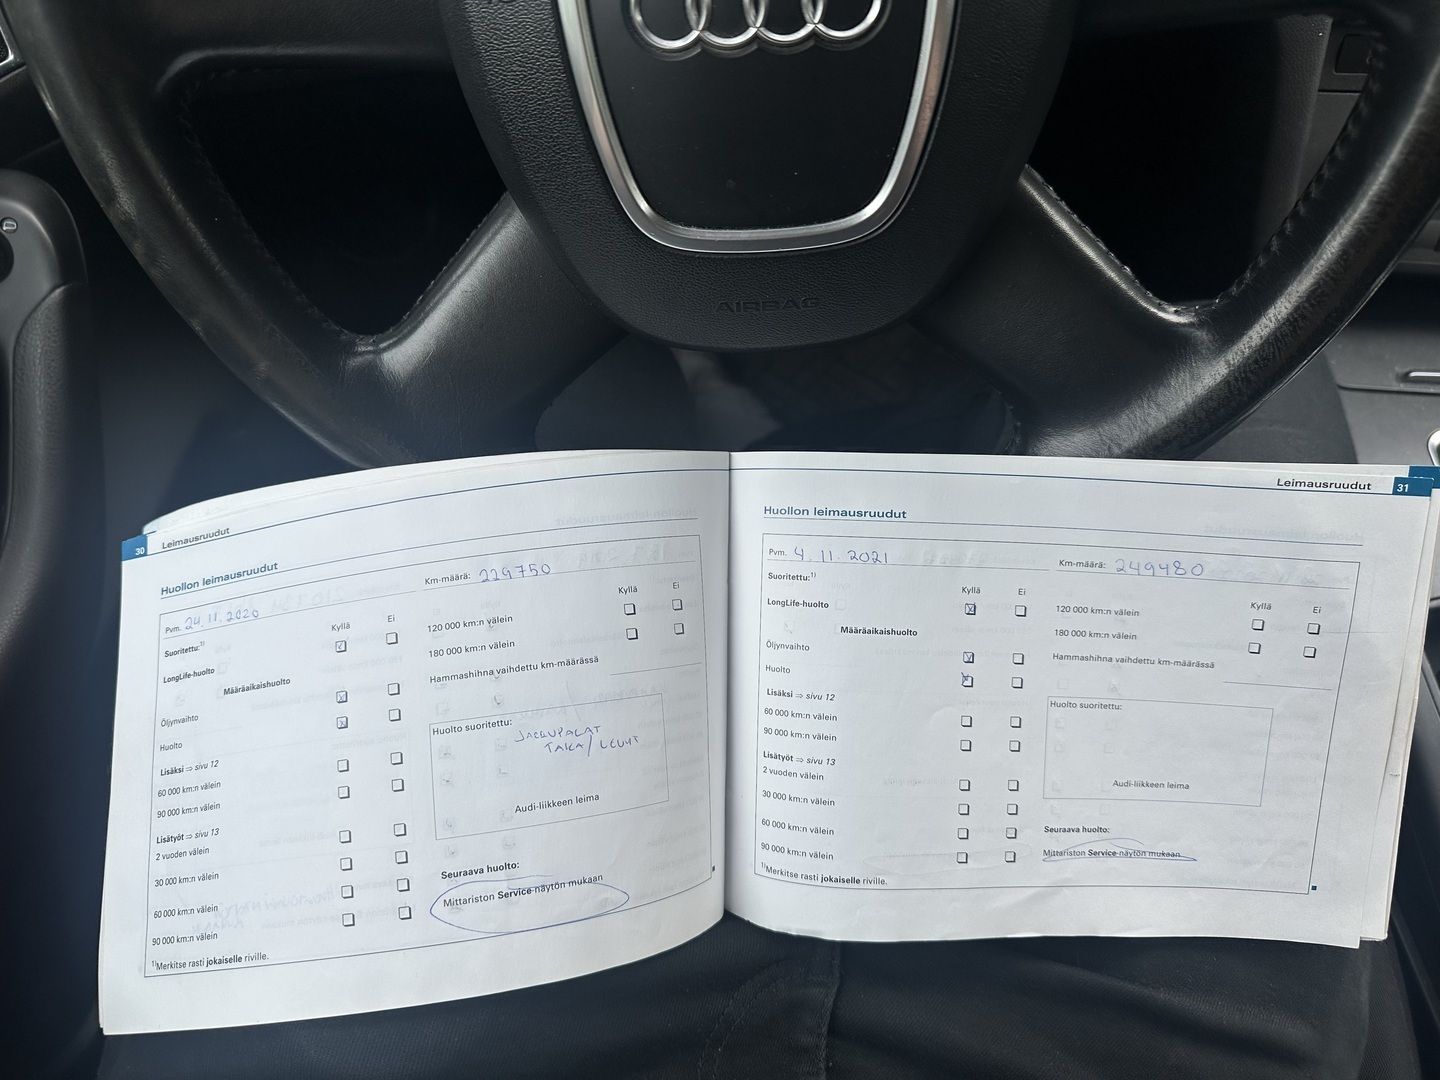 AIRBAG
30 Leimausruudut
Huollon leimausruudut
Pvm. 24.11.2020 Km-määrä: 229750
Suoritettu:¹⁾ Kyllä Ei Kyllä Ei
LongLife-huolto 120 000 km:n välein
Määräaikaishuolto 180 000 km:n välein
Öljynvaihto Hammashihna vaihdettu km-määrässä
Huolto
Lisäksi ⇒ sivu 12
60 000 km:n välein
90 000 km:n välein
Lisätyöt ⇒ sivu 13
2 vuoden välein
30 000 km:n välein
60 000 km:n välein
90 000 km:n välein
¹⁾Merkitse rasti jokaiselle riville.
Huolto suoritettu:
JARRUPALAT
TAKA/
Audi-liikkeen leima
Seuraava huolto:
Mittariston Service-näytön mukaan
Leimausruudut 31
Huollon leimausruudut
Pvm. 4.11.2021 Km-määrä: 249480
Suoritettu:¹⁾ Kyllä Ei Kyllä Ei
LongLife-huolto 120 000 km:n välein
Määräaikaishuolto 180 000 km:n välein
Öljynvaihto Hammashihna vaihdettu km-määrässä
Huolto
Lisäksi ⇒ sivu 12
60 000 km:n välein
90 000 km:n välein
Lisätyöt ⇒ sivu 13
2 vuoden välein
30 000 km:n välein
60 000 km:n välein
90 000 km:n välein
¹⁾Merkitse rasti jokaiselle riville.
Huolto suoritettu:
Audi-liikkeen leima
Seuraava huolto:
Mittariston Service-näytön mukaan